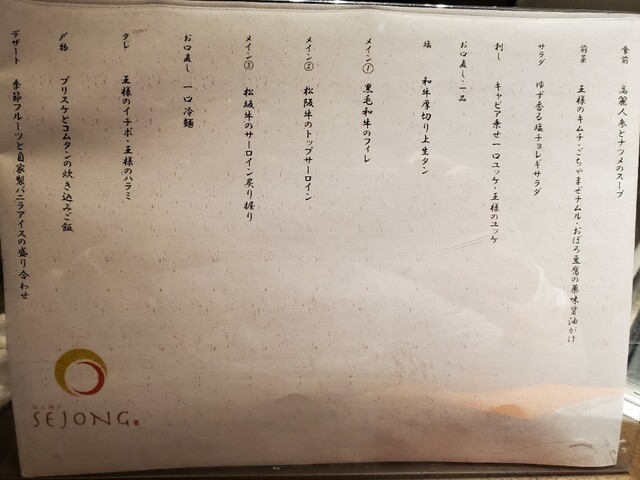 食前 高麗人参とナツメのスープ
前菜 王様のキムチ・ごちゃまぜナムル・おぼろ豆腐の薬味醤油がけ
サラダ ゆず香る塩チョレギサラダ
刺し キャビア乗せ一口ユッケ・王様のユッケ
お口直し 一品
塩 和牛厚切り上生タン
メイン① 黒毛和牛のフィレ
メイン② 松阪牛のトップサーロイン
メイン③ 松坂牛のサーロイン炙り握り
お口直し 一口冷麺
タレ 王様のイチボ・王様のハラミ
〆物 ブリスケとコムタンの炊き込みご飯
デザート 季節フルーツと自家製バニラアイスの盛り合わせ
SEJONG.